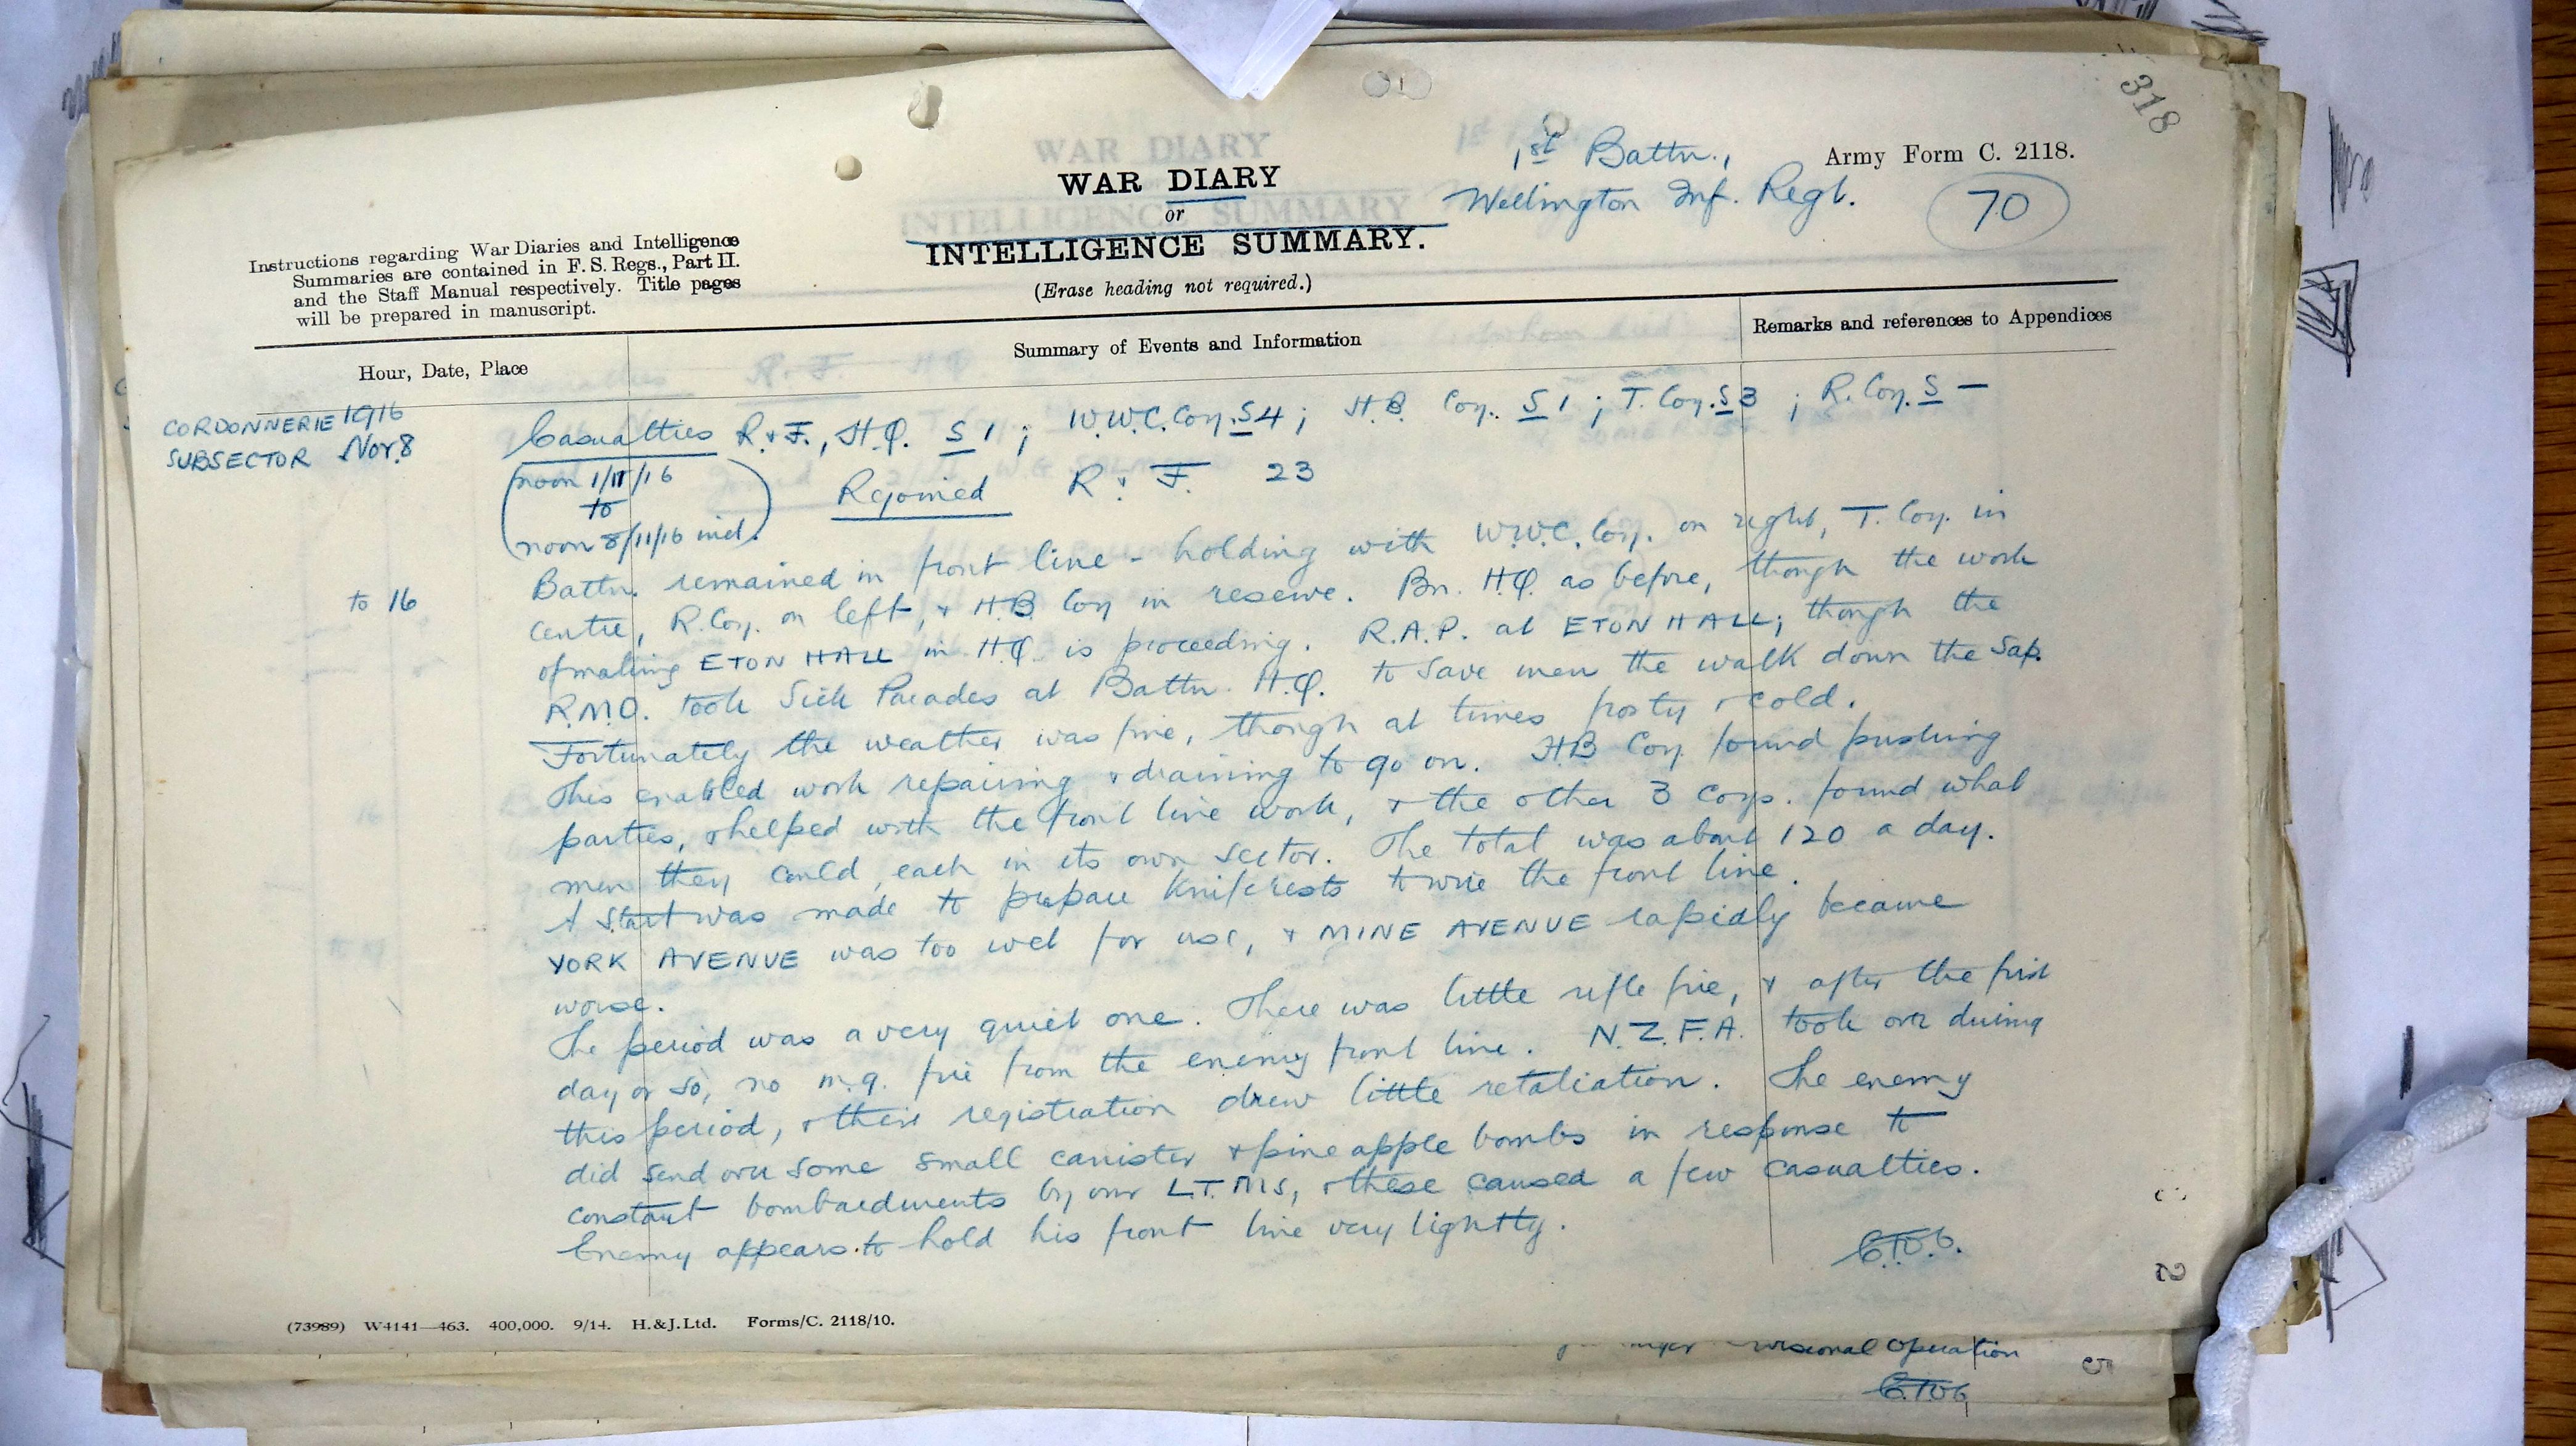 318
1st Battn.,
Wellington Inf. Regt.
Army Form C. 2118.
70
WAR DIARY
or
INTELLIGENCE SUMMARY.
(Erase heading not required.)
Instructions regarding War Diaries and Intelligence
Summaries are contained in F. S. Regs., Part II.
and the Staff Manual respectively. Title pages
will be prepared in manuscript.
Hour, Date, Place
Summary of Events and Information
Remarks and references to Appendices
CORDONNERIE 1916
SUBSECTOR Nov. 8
Casualties R & F., H.Q. S 1 ; W.W.C. Coy. S 4 ; H.B. Coy. S 1 ; T. Coy. S 3 ; R. Coy. S —
(noon 1/11/16
to
noon 8/11/16 incl.)
Rejoined R & F. 23
to 16
Battn. remained in front line - holding with W.W.C. Coy. on right, T. Coy. in
centre, R. Coy. on left, & H.B Coy in reserve. Bn. H.Q. as before, though the work
of making ETON HALL in H.Q. is proceeding. R.A.P. at ETON HALL; though the
R.M.O. took Sick Parades at Battn. H.Q. to save men the walk down the Sap.
Fortunately the weather was fine, though at times frosty & cold.
This enabled work repairing & draining to go on. H.B Coy. found pushing
parties, & helped with the front line work, & the other 3 coys. found what
men they could, each in its own sector. The total was about 120 a day.
A start was made to prepare Knife rests to wire the front line.
YORK AVENUE was too wet for use, & MINE AVENUE rapidly became
worse.
The period was a very quiet one. There was little rifle fire, & after the first
day or so, no m.g. fire from the enemy front line. N.Z.F.A. took over during
this period, & their registration drew little retaliation. The enemy
did send over some small canister & pineapple bombs in response to
constant bombardments by our L.T.Ms, & these caused a few casualties.
Enemy appears to hold his front line very lightly.
(73989) W4141—463. 400,000. 9/14. H.&J.Ltd. Forms/C. 2118/10.
Operation